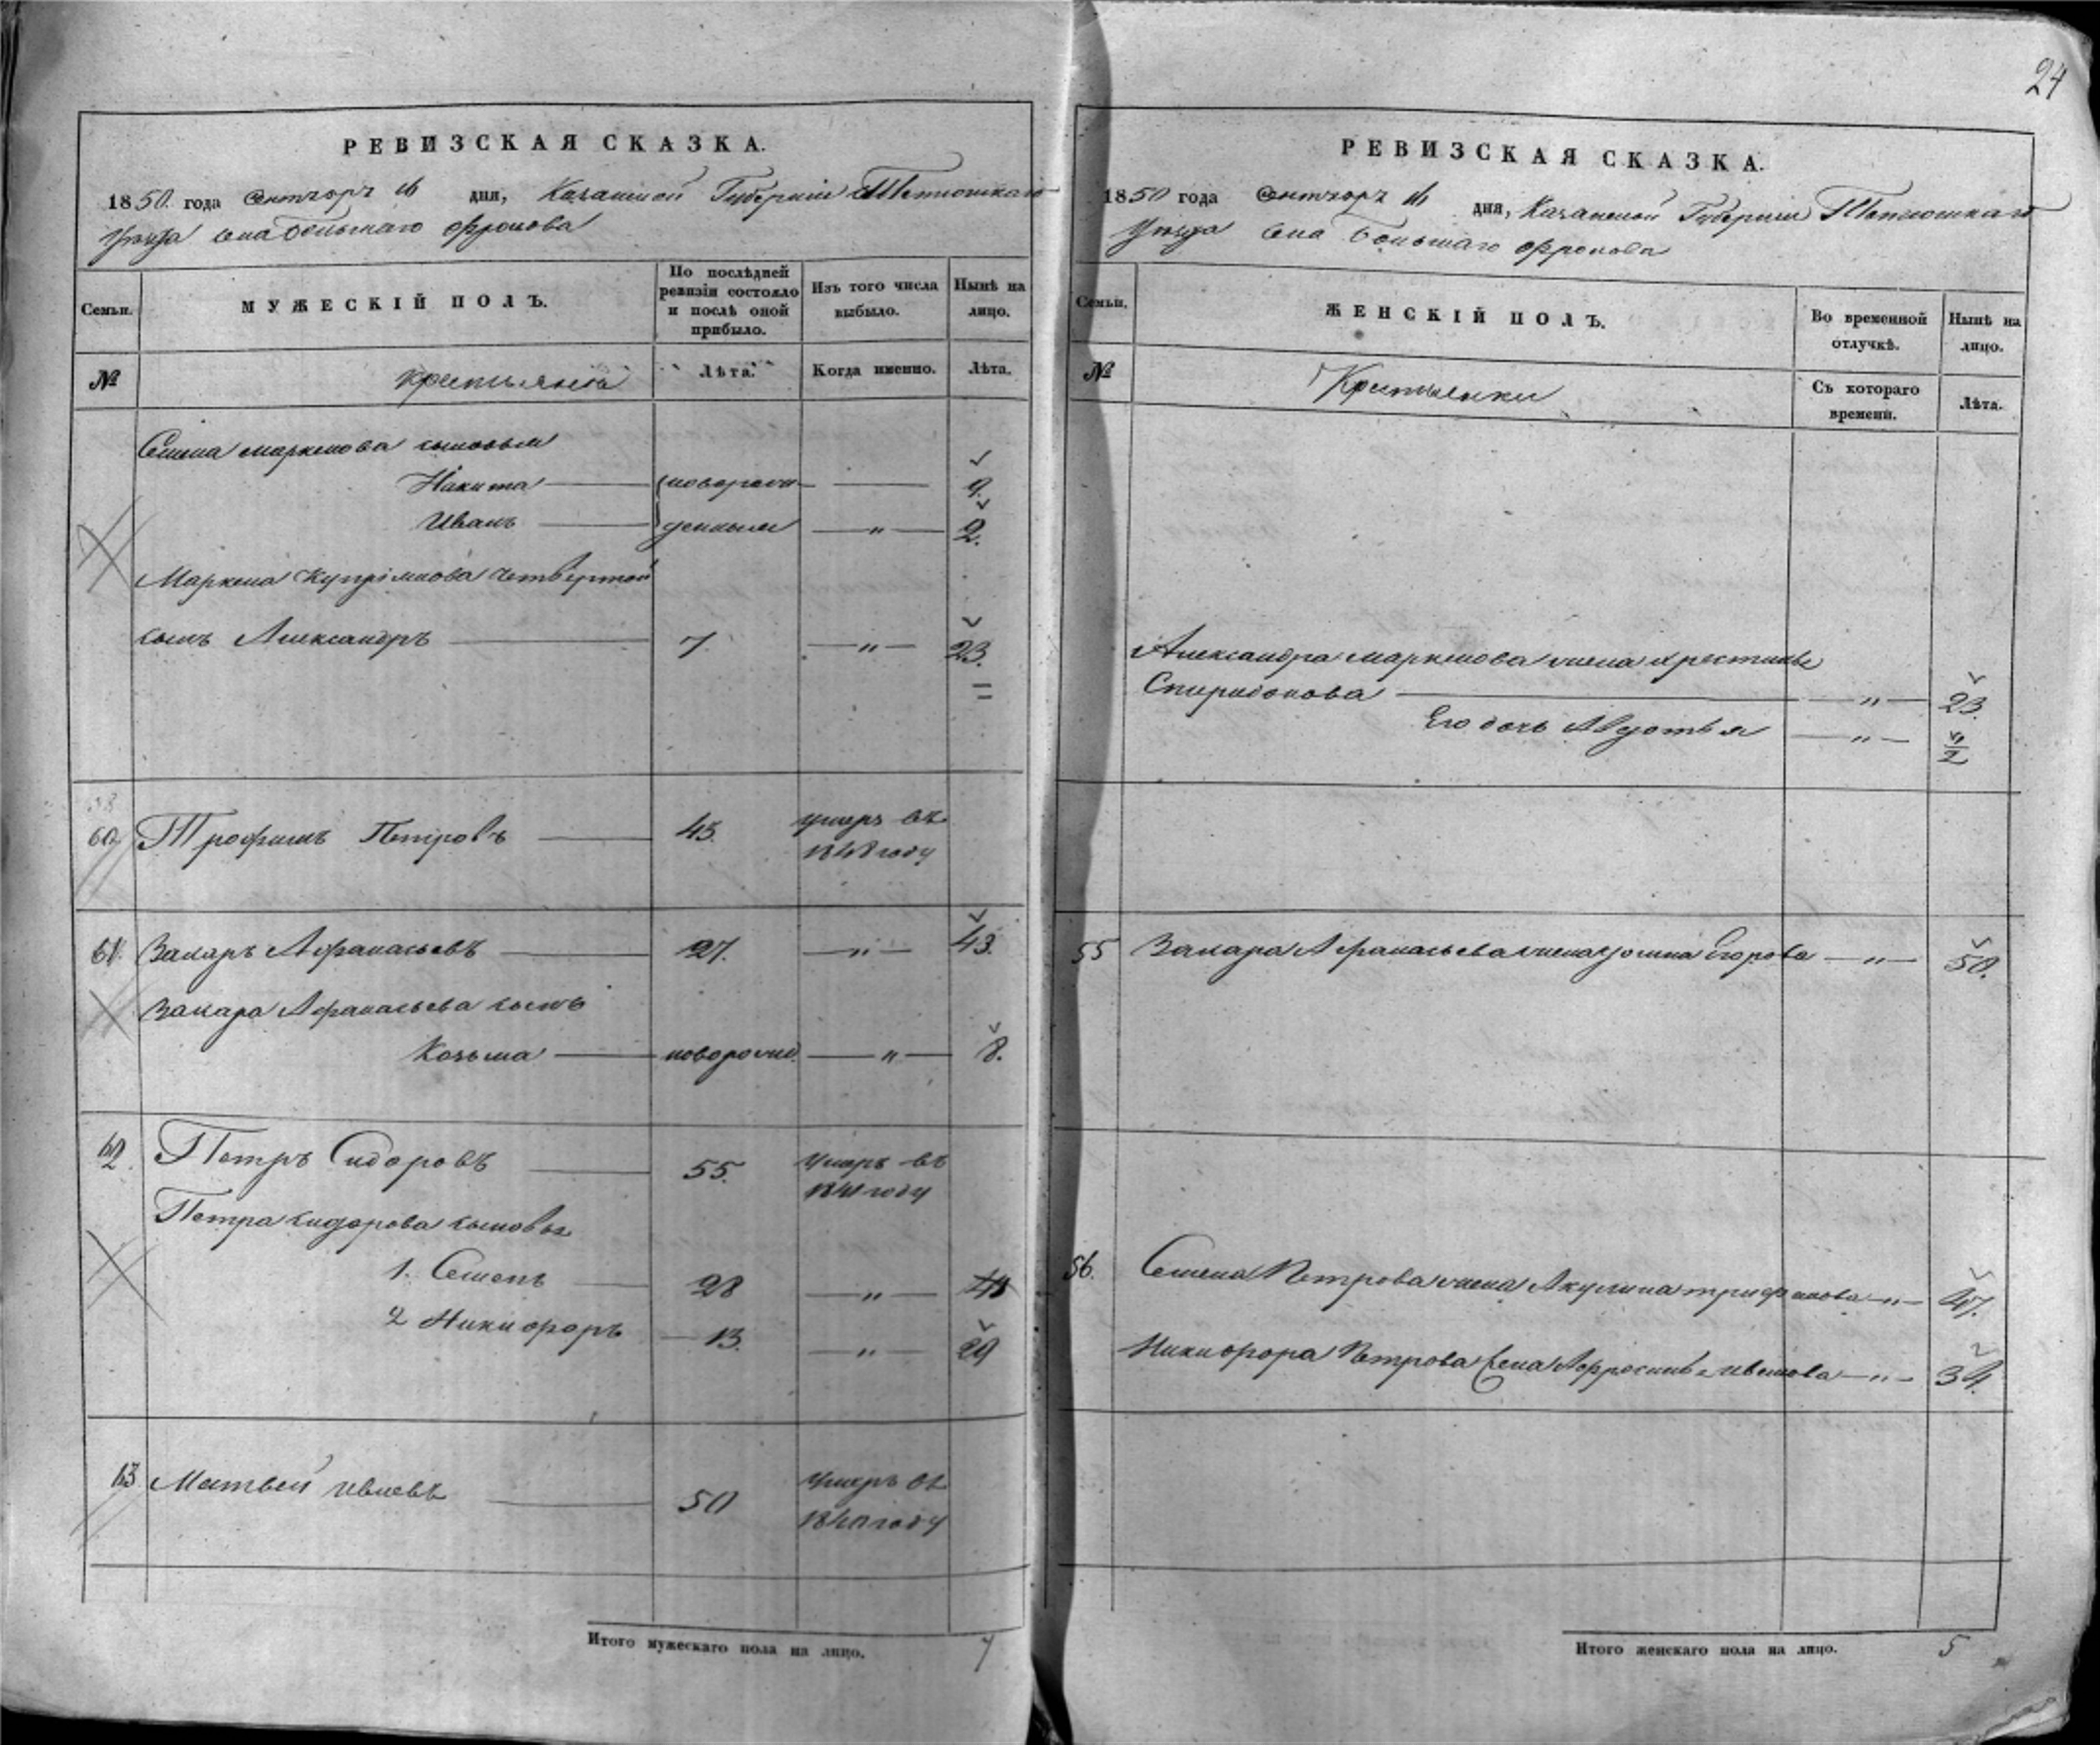 24
РЕВИЗСКАЯ СКАЗКА.
1850. года Сентября 16 дня, Казанской Губернии Тетюшскаго
Уезда Села Большаго Фролова
Семьи.
МУЖЕСКІЙ ПОЛЪ.
По послѣдней ревизіи состояло и послѣ оной прибыло.
Изъ того числа выбыло.
Нынѣ на лицо.
№
крестьяне
Лѣта.
Когда именно.
Лѣта.
Семена Маркелова сыновья
Никита новорож 9.
Иванъ денныя " 2.
Маркела четвертой
сынъ Александръ 7. " 23.
60. Трофимъ Петровъ 43. умеръ въ
1848 году
61. Захаръ Афанасьевъ 27. " 43.
Захара Афанасьева сынъ
Козьма новорожд. " 8.
62. Петръ Сидоровъ 55. умеръ въ
1841 году
Петра Сидорова сыновья
1. Семенъ 28 " 44
2 Никифоръ 13. " 29
63 Матвей Ивлевъ 50 умеръ въ
1840 году
Итого мужескаго пола на лицо. 7
РЕВИЗСКАЯ СКАЗКА.
1850 года Сентября 16 дня, Казанской Губернии Тетюшскаго
Уезда Села Большаго Фролова
Семьи.
ЖЕНСКІЙ ПОЛЪ.
Во временной отлучкѣ.
Нынѣ на лицо.
№
Крестьянки
Съ котораго времени.
Лѣта.
Александра Маркелова жена Хрестинья
Спиридонова " 23.
Его дочь Авдотья "
55 Захара Афанасьева жена Устина Егорова " 50.
56. Семена Петрова жена Акулина Трифонова " 47.
Никифора Петрова жена Афросинья " 34.
Итого женскаго пола на лицо. 5